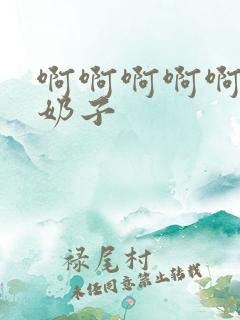 啊啊啊啊啊
奶子
禄尾村
未经同意禁止转载